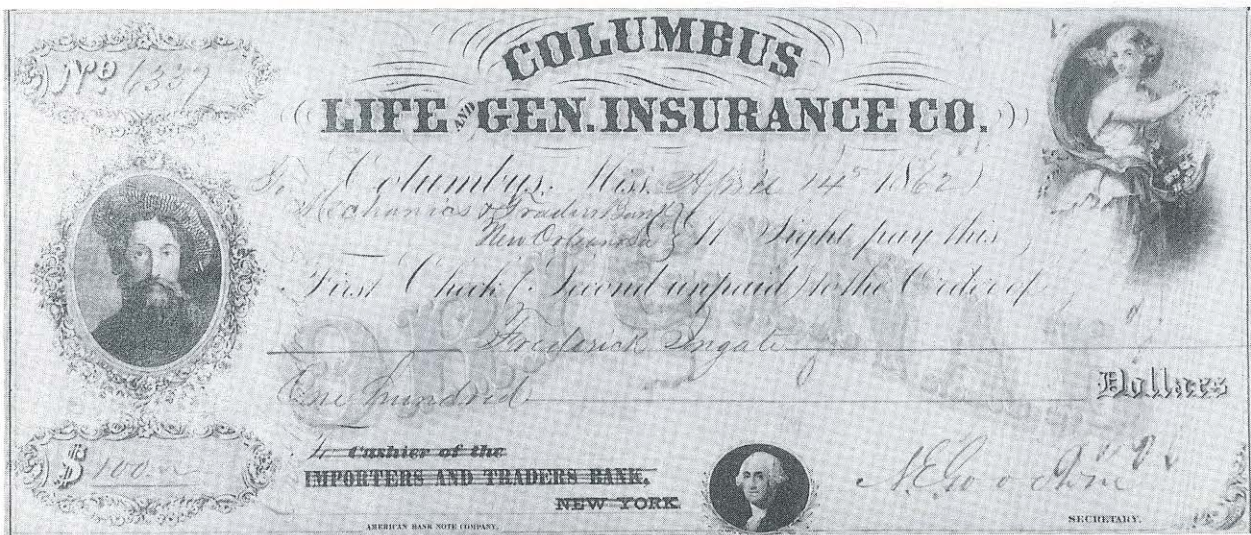 No 6337
COLUMBUS
LIFE AND GEN. INSURANCE CO.
To Columbus, Miss. April 14 1862
Mechanics & Traders Bank
New Orleans At Sight pay this
First Check (Second unpaid) to the Order of
ORIGINAL
Frederick
One hundred Dollars
$ 100
To Cashier of the
IMPORTERS AND TRADERS BANK,
NEW YORK
AMERICAN BANK NOTE COMPANY.
SECRETARY.